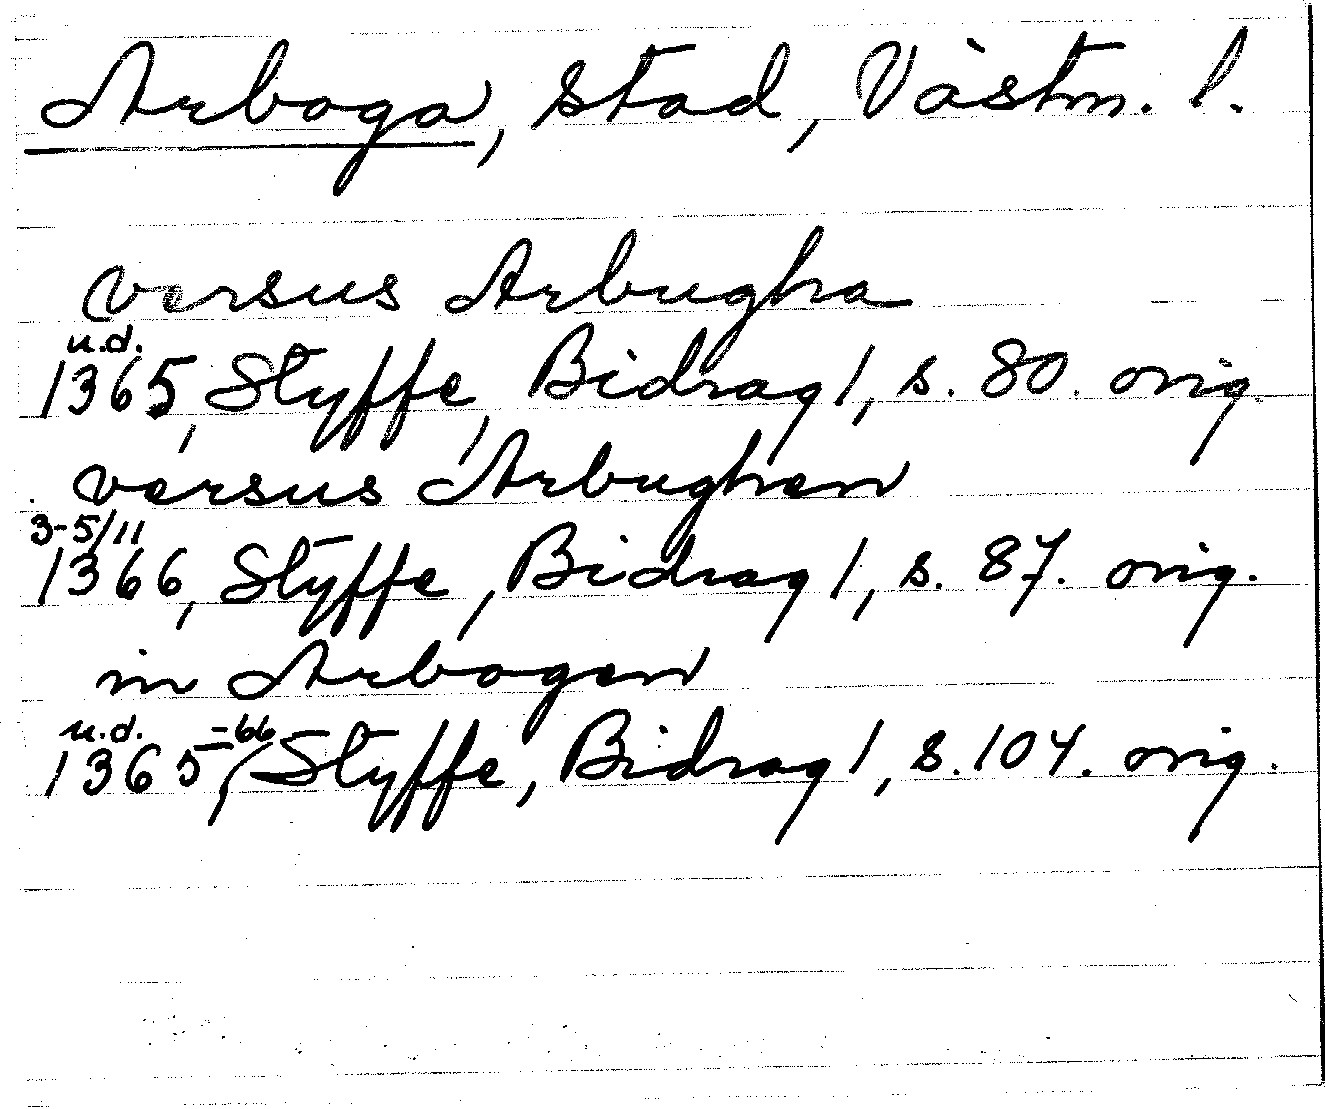 Arboga, stad, Västm. l.
versus Arbugha
u.d.
1365, Styffe, Bidrag 1, s. 80. orig.
versus Arbughen
3-5/11
1366, Styffe, Bidrag 1, s. 87. orig.
in Arbogen
u.d. -66
1365, Styffe, Bidrag 1, s. 104. orig.